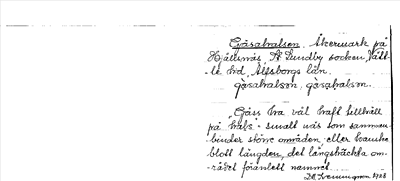 Gåsahalsen. Åkermark på
Hjällsnäs, St Lundby socken, Vätt-
le hrd, Älfsborgs län.
gåsahalsen, gåsahalsen.
"Gäss bra väl haft tillhåll
på hals" - smalt näs som samman-
binder större områden, eller kanske
blott längden, det långsträckta om-
rådet föranlett namnet.
1928